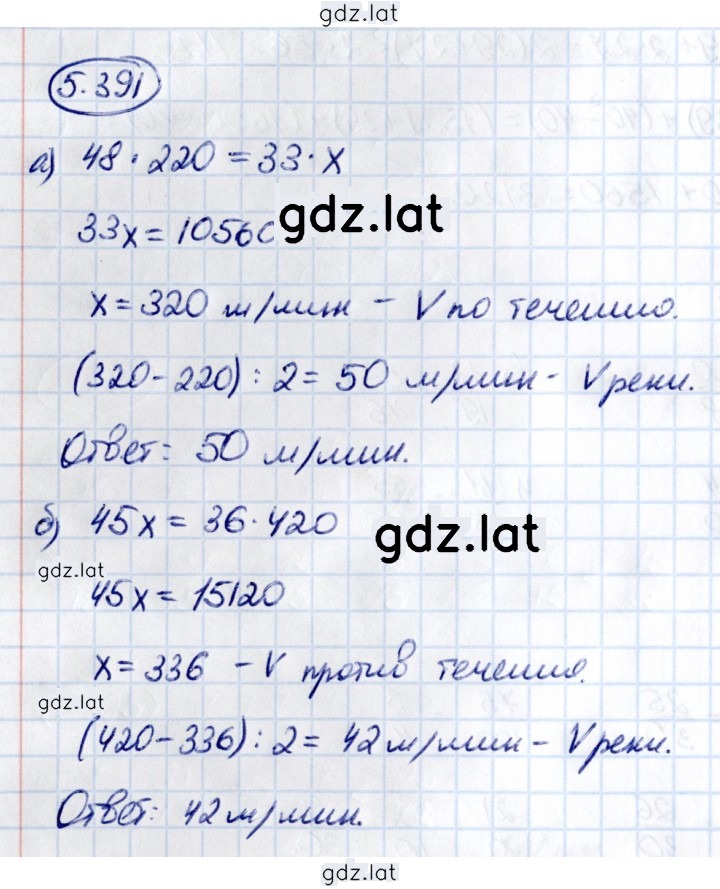 gdz.lat
5.391
а) 48 · 220 = 33 · x
33x = 10560
gdz.lat
x = 320 м/мин - V по течению.
(320 - 220) : 2 = 50 м/мин - V реки.
Ответ: 50 м/мин.
б) 45x = 36 · 420
gdz.lat
gdz.lat
45x = 15120
x = 336 - V против течения.
gdz.lat
(420 - 336) : 2 = 42 м/мин - V реки.
Ответ: 42 м/мин.
gdz.lat